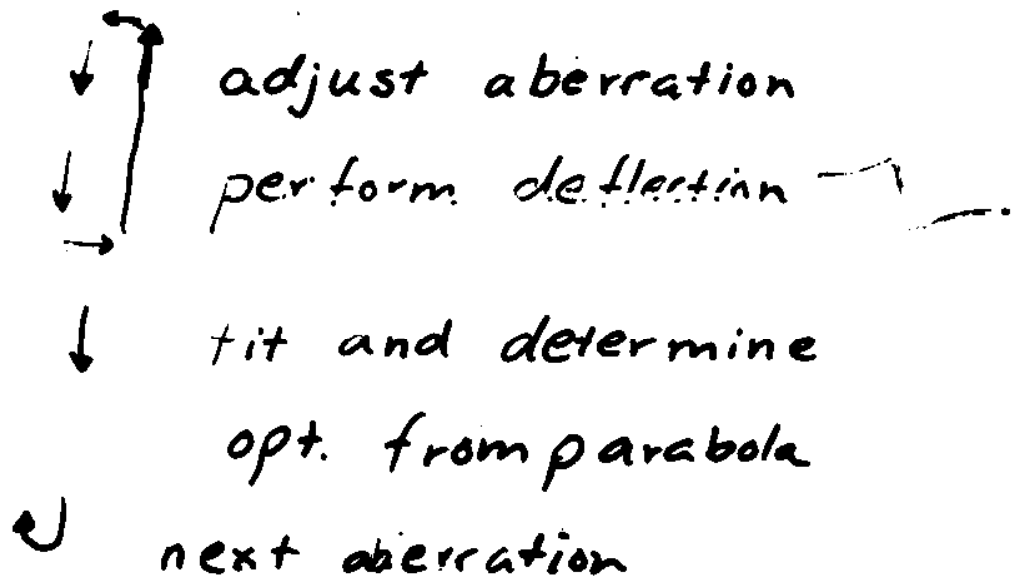 adjust aberration
perform deflection
fit and determine
opt. from parabola
next aberration